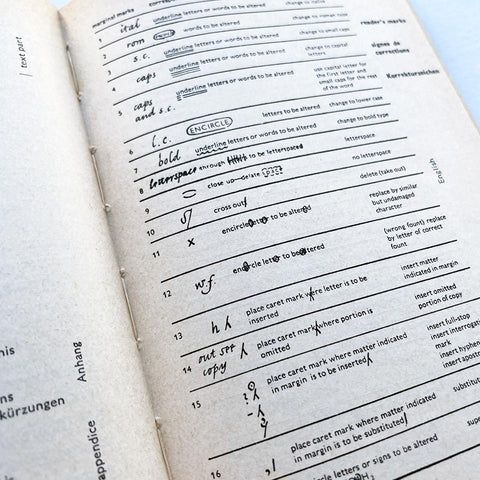 text part
Anhang
appendice
kürzungen
marginal marks
change to italic
1 ital underline letters or words to be altered change to roman type
2 rom letters or words to be altered change to small caps
3 s.c. underline letters or words to be altered change to capital letters
4 caps underline letters or words to be altered use capital letter for the first letter and small caps for the rest of the word
5 caps and s.c. underline letters or words to be altered
reader's marks
signes de corrections
Korrekturzeichen
English
6 l.c. ENCIRCLE letters to be altered change to lower case
7 bold underline letters or words to be altered change to bold type
8 letterspace through to be letterspaced letterspace
9 close up—delete space no letterspace
10 cross out delete (take out)
11 x encircle letter to be altered replace by similar but undamaged character
12 w.f. encircle letter to be altered (wrong fount) replace by letter of correct fount
13 h place caret mark where letter is to be inserted insert matter indicated in margin
14 out see copy place caret mark where portion is omitted insert omitted portion of copy
15 place caret mark where matter indicated in margin is to be inserted
insert full-stop
mark
16 place caret mark where matter indicated in margin is to be substituted
letters or signs to be altered